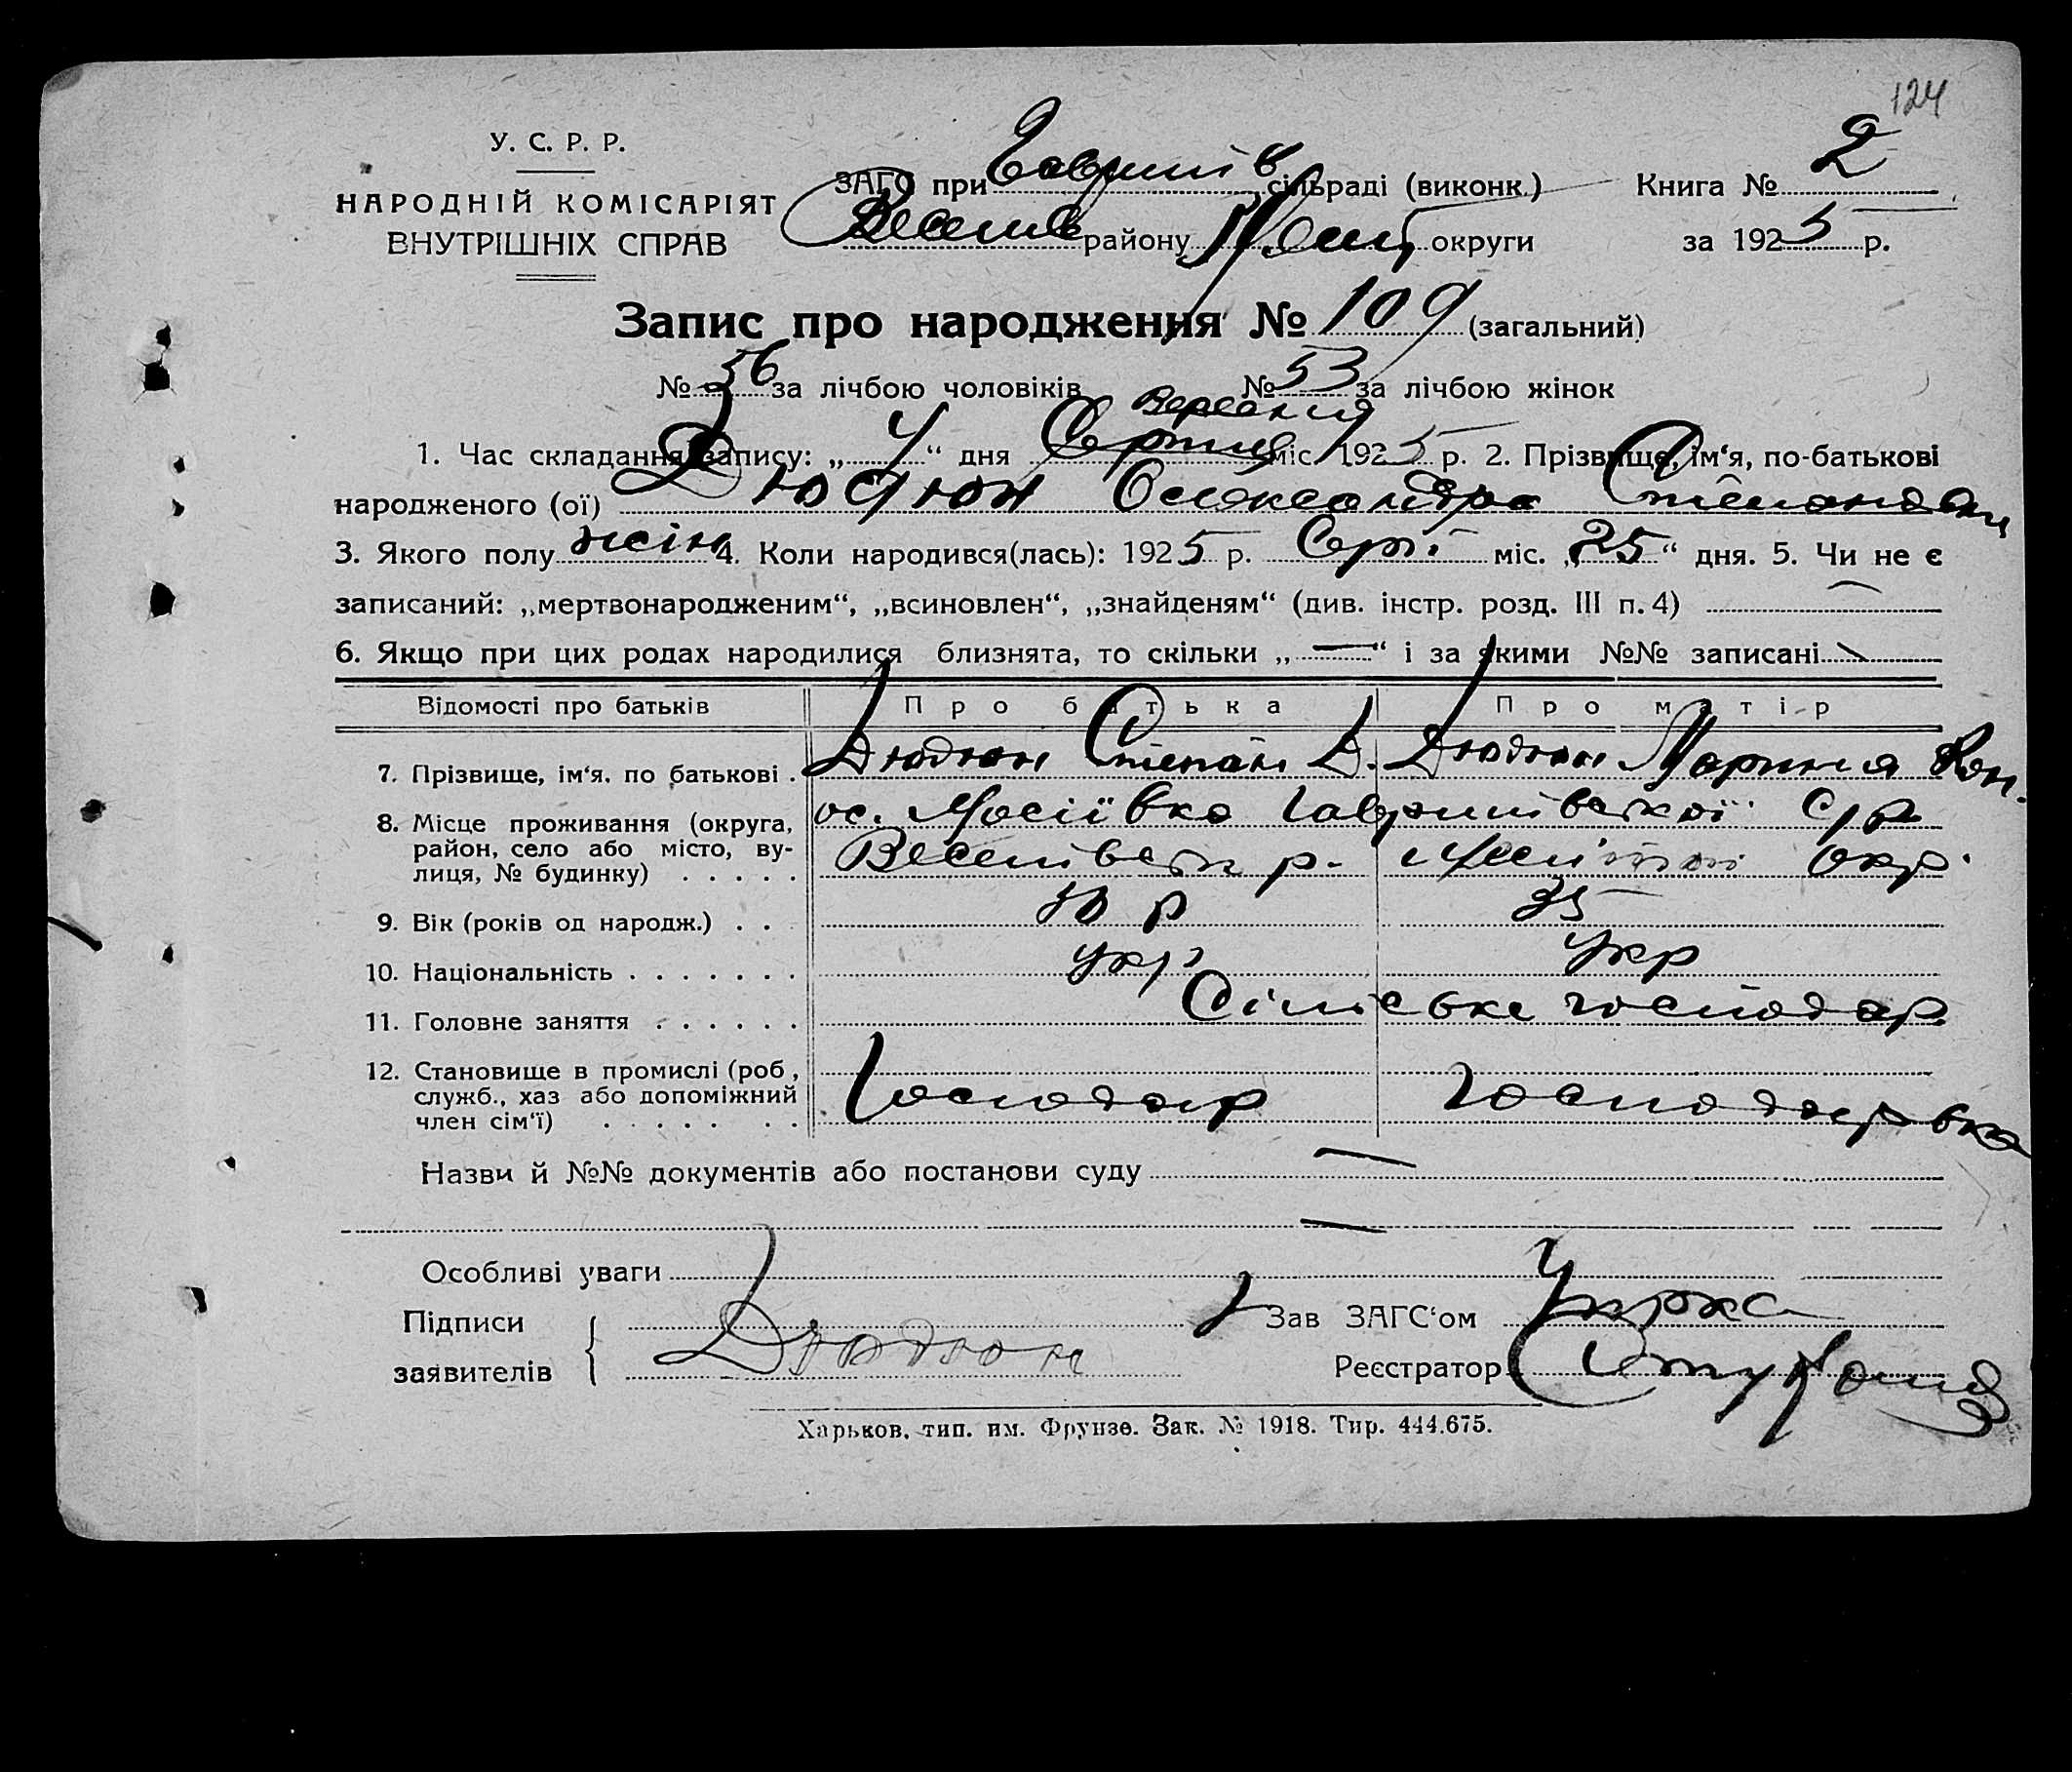 124
У. С. Р. Р.
НАРОДНІЙ КОМІСАРІЯТ
ВНУТРІШНІХ СПРАВ
ЗАГС при Гаврилів сільраді (виконк.) Книга № 2
Веселів району округи за 1925 р.
Запис про народження № 109 (загальний)
№ 56 за лічбою чоловіків № 53 за лічбою жінок
Вересня
1. Час складання запису: „4“ дня Серпня міс. 1925 р. 2. Прізвище, ім‘я, по-батькові
народженого (ої) Дюдюн Олександра Степановна
3. Якого полу жін 4. Коли народився(лась): 1925 р. Серп. міс. „25“ дня. 5. Чи не є
записаний: „мертвонародженим“, „всиновлен“, „знайденям“ (див. інстр. розд. III п. 4) —
6. Якщо при цих родах народилися близнята, то скільки „—“ і за якими №№ записані
Відомості про батьків Про батька Про матір
7. Прізвище, ім‘я. по батькові . Дюдюн Степан Д. Дюдюн Марина Кон.
8. Місце проживання (округа, ос. Мосіївка Гаврилівської С/р
район, село або місто, ву- Веселівськ р. окр.
лиця, № будинку) . . . . .
9. Вік (років од народж.) . . . р 35
10. Національність . . . . . . . укр укр
11. Головне заняття . . . . . . Сільське господар
12. Становище в промислі (роб,
служб., хаз або допоміжний Господар Господарка
член сім‘ї) . . . . . . .
Назви й №№ документів або постанови суду —
—
Особливі уваги
Підписи Зав ЗАГС‘ом
заявителів Дюдюн Реєстратор
Харьков, тип. им. Фрунзе. Зак. № 1918. Тир. 444.675.